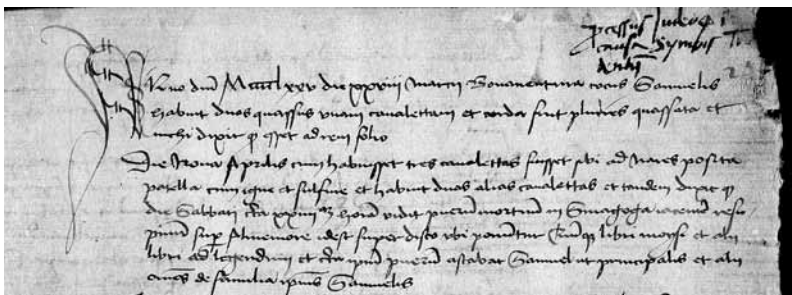 causa Symonis
Anno dni Mcccclxxv die xxviii Marcij Bonaventura cocus Samuelis
habuit duos quassus unam cavalettam et corda fuit pluries quassata et
nichil dixit q esset ad rem folio
Die Nona Aprilis cum habuisset tres cavalettas fuisset sibi ad Nares posita
patella cum igne et sulfure et habuit duas alias cavalettas et tandem dixit q
die Sabbati circa horam vidit puerum mortuum in Sinagoga iacentem resu
pinum super Almemore idest super disco ubi ponuntur libri moysi et alij
libri ad legendum et circa ipsum puerum astabat Samuel ut principalis et alij
omnes de familia ipsius Samuelis